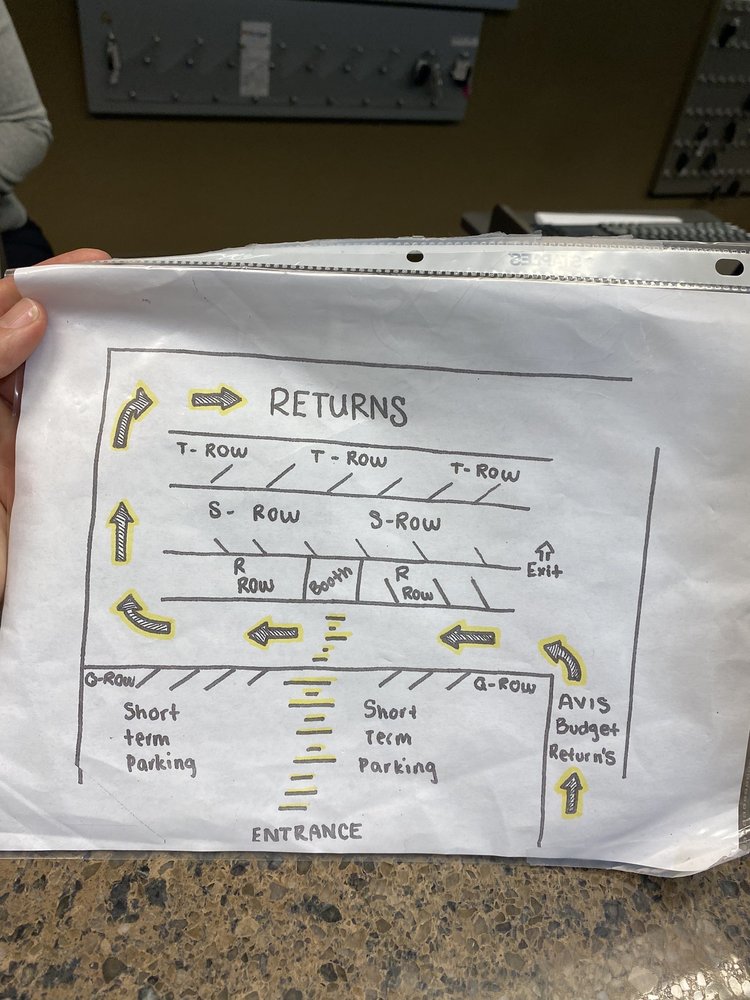 STAPLES
RETURNS
T-ROW T-ROW T-ROW
S-ROW S-ROW
R
ROW
Booth
R
Row
Exit
Q-ROW Q-ROW
Short
term
Parking
Short
Term
Parking
AVIS
Budget
Return's
ENTRANCE